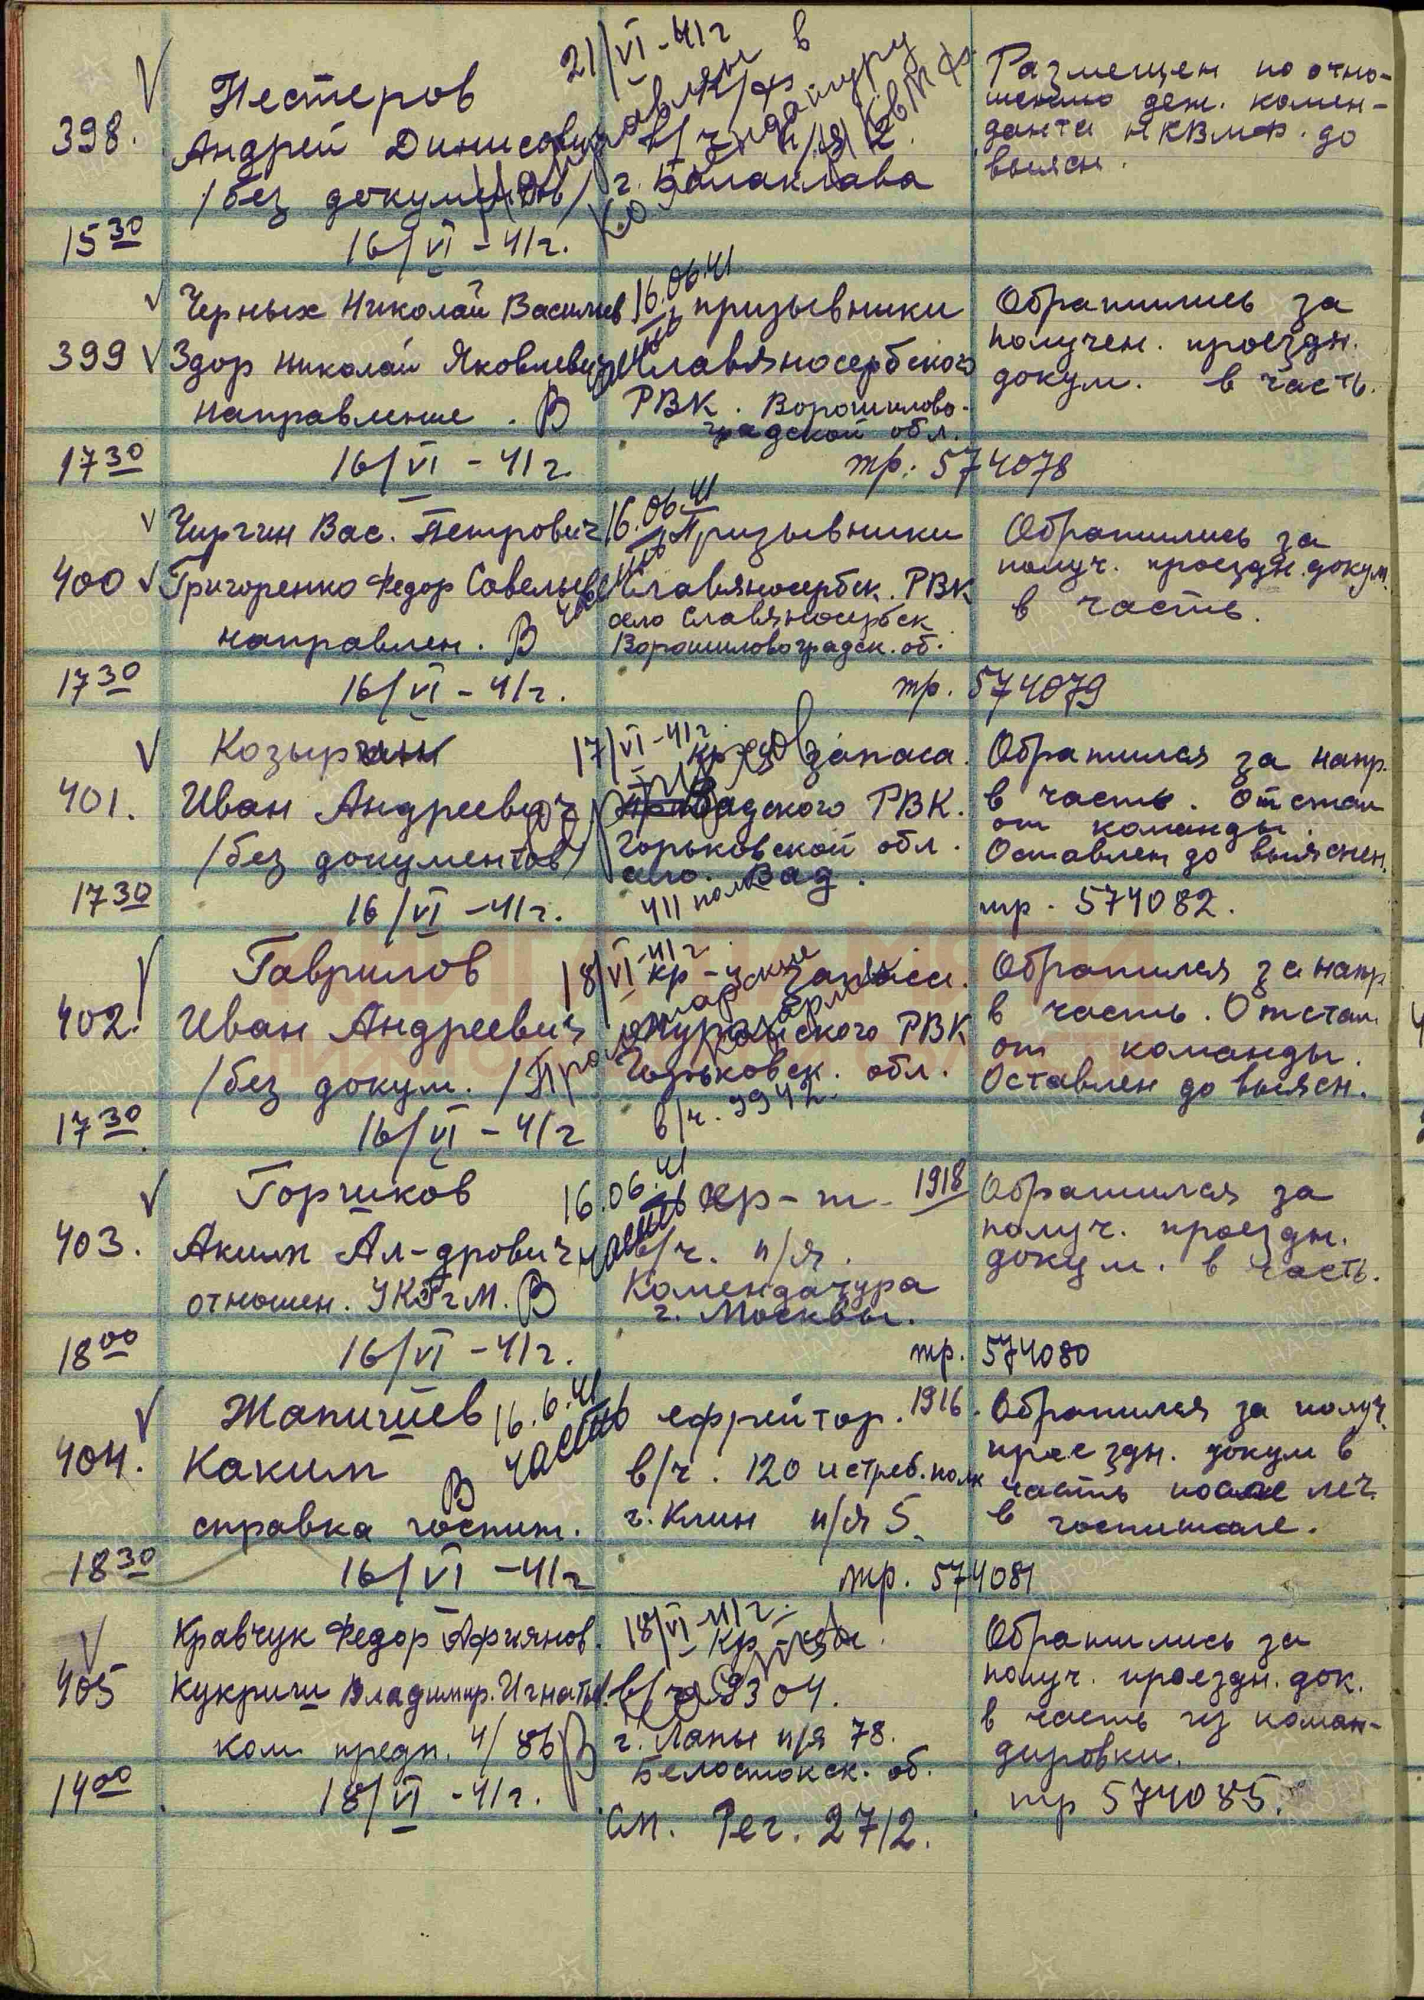 398.
Нестеров
Андрей Динисович
/без документов/
21/VI-41г
направлен в
комендатуру
КВМФ
к/ф
в/ч п/я 2.
г. Балаклава
Размещен по отно-
шению деж. комен-
данта НКВМФ. до
выясн.
15 30
16/VI-41г.
399
Черных Николай Васильев
Здор Николай Яковлевич
направление. В
16.06.41
часть
призывники
Славяносербского
РВК. Ворошилово-
градской обл.
Обратились за
получен. проездн.
докум. в часть.
17 30
16/VI-41г.
тр. 574078
400
Чиргин Вас. Петрович
Григоренко Федор Савельев
направлен. В
16.06.41
часть
Призывники
Славяносербск. РВК
село Славяносербск
Ворошиловоградск. об.
Обратились за
получ. проездн. докум.
в часть.
17 30
16/VI-41г.
тр. 574079
401.
Козырин
Иван Андреевич
/без документов/
17/VI-41г.
кр-ец запаса.
Вадского РВК.
Горьковской обл.
село. Вад.
411 полк
Обратился за напр.
в часть. Отстал
от команды.
Оставлен до выяснен.
17 30
16/VI-41г.
тр. 574082.
402.
Гаврилов
Иван Андреевич
/без докум./
18/VI-41г
Пролетарские
казармы
кр-ец запаса.
РВК
Горьковск. обл.
в/ч. 9942.
Обратился за напр
в часть. Отстал
от команды.
Оставлен до выясн.
17 30
16/VI-41г
403.
Горшков
Аким Ал-дрович
отношен. УКГгМ. В
16.06.41
часть
кр-ц. 1918
в/ч. п/я.
Комендатура
г. Москвы.
Обратился за
получ. проездн.
докум. в часть.
18 00
16/VI-41г.
тр. 574080
404.
Жапишев
Каким
справка госпит.
16.6.41
В часть
ефрейтор. 1916.
в/ч. 120 истреб. полк
г. Клин п/я 5.
Обратился за получ.
проездн. докум в
часть после леч.
в госпитале.
18 30
16/VI-41г
тр. 574081
405
Кравчук Федор Афиянов.
Кукриш Владимир. Игнатьев.
ком предп. 4/86
В
18/VI-41г.
кр-цы.
в/ч 9304.
г. Лапы п/я 78.
Белостокск. об.
Обратились за
получ. проездн. док.
в часть из коман-
дировки.
14 00
18/VI-41г.
тр 574085.
См. Рег. 2712.
КНИГА ПАМЯТИ